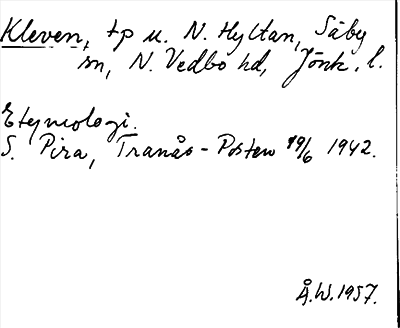 Kleven, tp u. N. Hyltan, Säby
sn, N. Vedbo hd, Jönk. l.
Etymologi.
S. Pira, Tranås-Posten 19/6 1942.
Å.W. 1957.